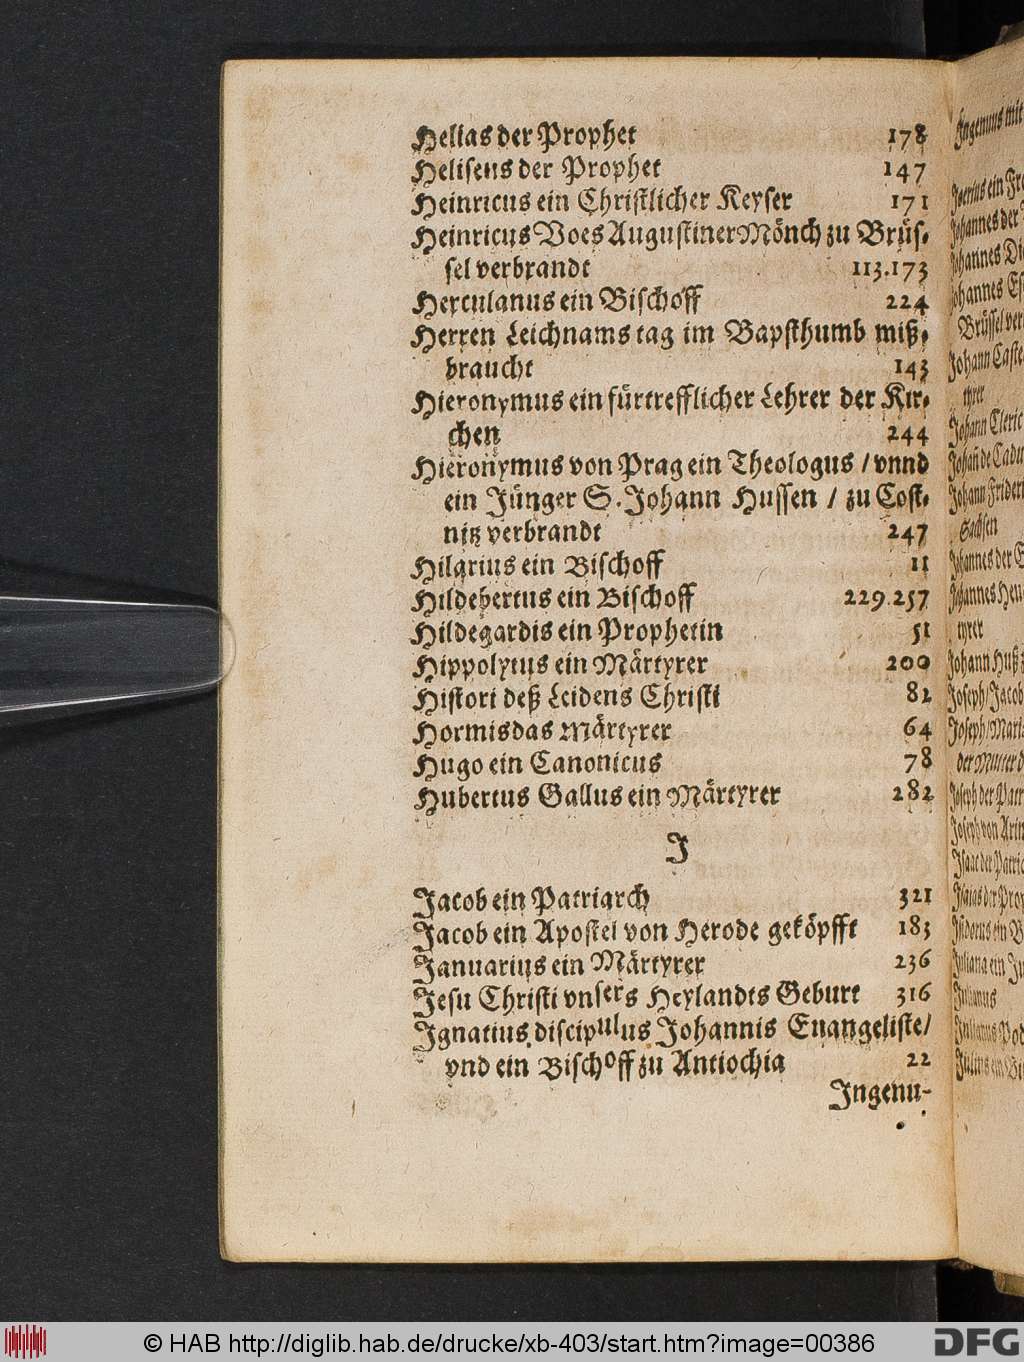 Helias der Prophet 178
Heliseus der Prophet 147
Heinricus ein Christlicher Keyser 171
Heinricus Voes Augustiner Mönch zu Brüs-
sel verbrandt 113.173
Herculanus ein Bischoff 224
Herren Leichnams tag im Bapsthumb miß-
braucht 143
Hieronymus ein fürtrefflicher Lehrer der Kir-
chen 244
Hieronymus von Prag ein Theologus / vnnd
ein Jünger S. Johann Hussen / zu Cost-
nitz verbrandt 247
Hilarius ein Bischoff 11
Hildebertus ein Bischoff 229.257
Hildegardis ein Prophetin 51
Hippolytus ein Märtyrer 200
Histori deß Leidens Christi 82
Hormisdas Märtyrer 64
Hugo ein Canonicus 78
Hubertus Gallus ein Märtyrer 282
J
Jacob ein Patriarch 321
Jacob ein Apostel von Herode geköpfft 183
Januarius ein Märtyrer 236
Jesu Christi vnsers Heylandts Geburt 316
Jgnatius discipulus Johannis Euangeliste /
vnd ein Bischoff zu Antiochia 22
Jngenu-
Jngenuus mit
Johannes der
Johannes
Brüssel ver
Johann Caste
tyrer
Johann Cleric
Johañ de Cadu
Johann Frideri
Sachsen
Johannes der E
Johannes Heu
tyrer
Johann Huß
Joseph / Jacob
Joseph / Mari
der Mutter d
Joseph der Patr
Joseph von Arim
Jsaac der Patri
Jsaias der Prop
Jsidorus ein B
Juliana ein Ju
Julianus
© HAB http://diglib.hab.de/drucke/xb-403/start.htm?image=00386
DFG